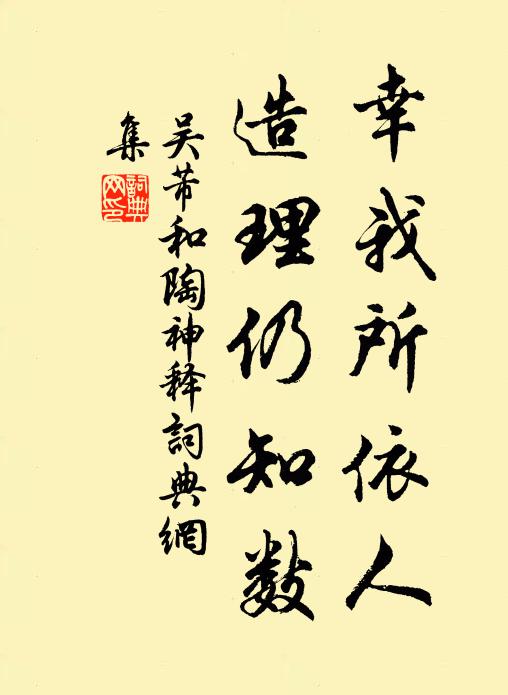 幸我所依人
造理仍知数
吴芾和陶神释詞典網
集
詞典
网印